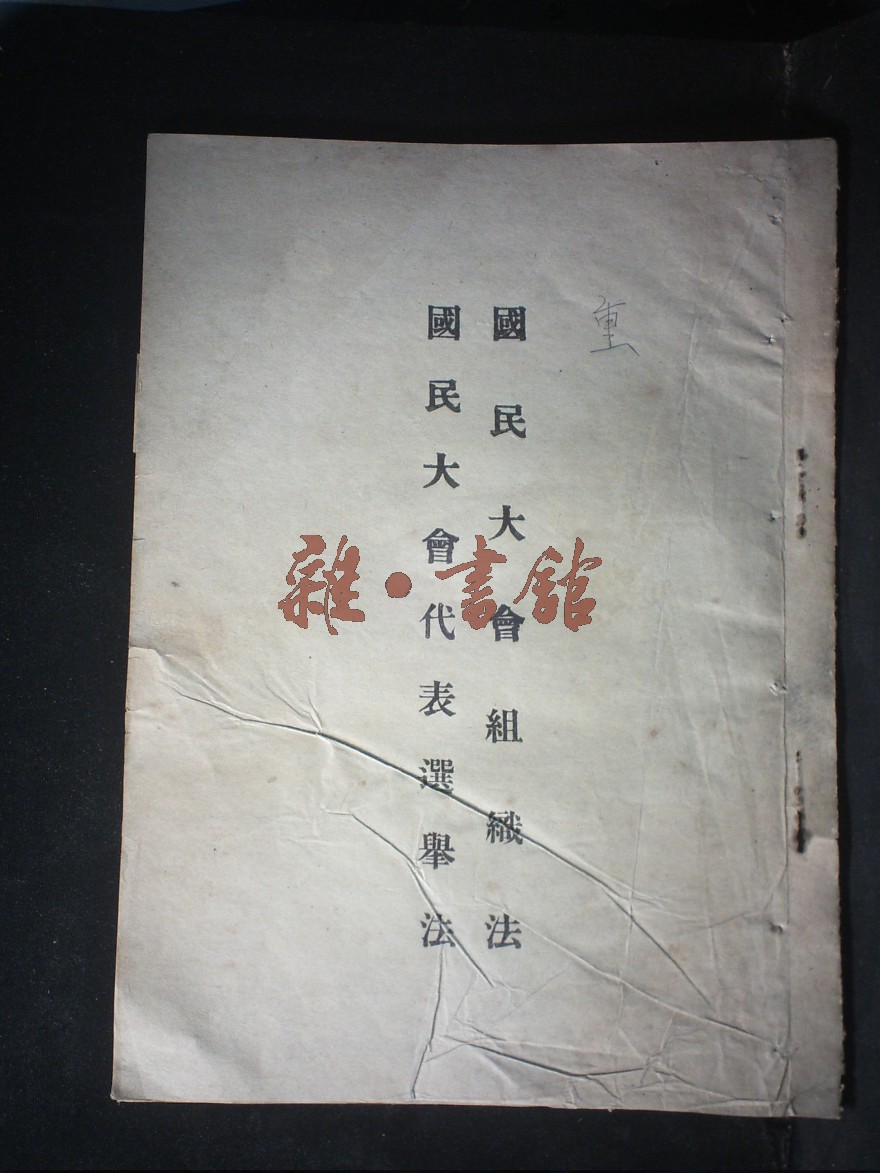 重
國民大會組織法
國民大會代表選舉法
雜·書館